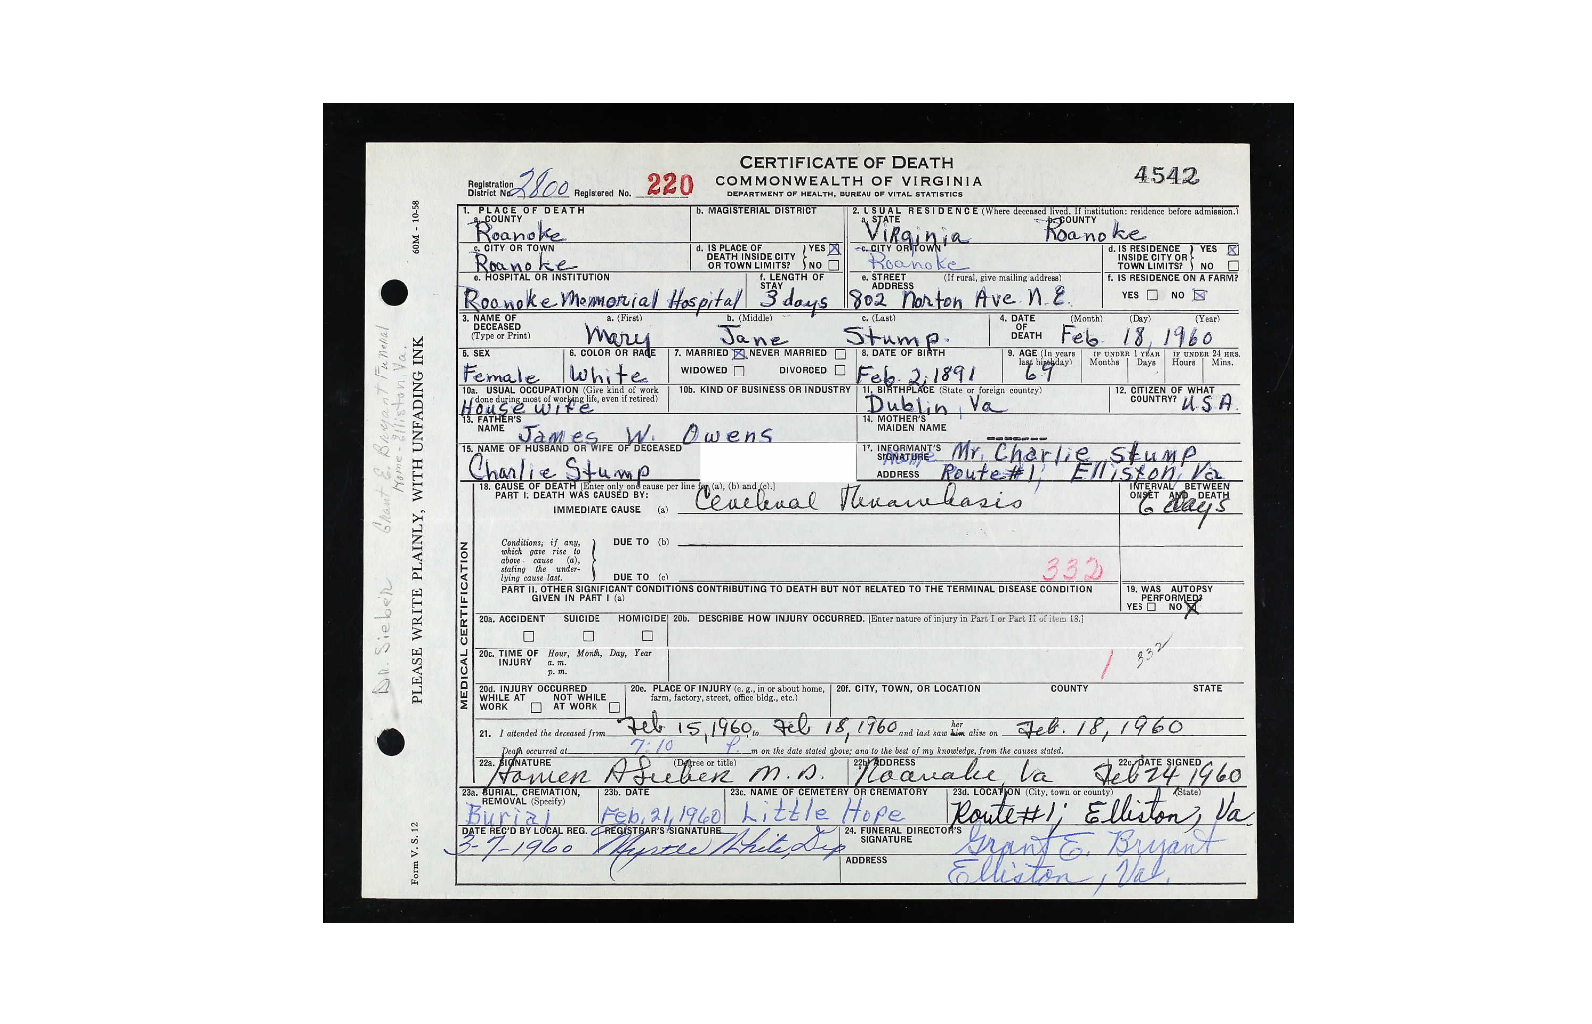 CERTIFICATE OF DEATH
COMMONWEALTH OF VIRGINIA
DEPARTMENT OF HEALTH, BUREAU OF VITAL STATISTICS
Registration District No. 2800 Registered No. 220
4542
1. PLACE OF DEATH b. MAGISTERIAL DISTRICT 2. USUAL RESIDENCE (Where deceased lived. If institution: residence before admission.)
a. COUNTY a. STATE b. COUNTY
Roanoke Virginia Roanoke
c. CITY OR TOWN d. IS PLACE OF DEATH INSIDE CITY OR TOWN LIMITS? YES NO c. CITY OR TOWN d. IS RESIDENCE INSIDE CITY OR TOWN LIMITS? YES NO
Roanoke Roanoke
e. HOSPITAL OR INSTITUTION f. LENGTH OF STAY e. STREET ADDRESS (If rural, give mailing address) f. IS RESIDENCE ON A FARM?
Roanoke Memorial Hospital 3 days 802 Norton Ave N.E. YES NO
3. NAME OF DECEASED (Type or Print) a. (First) b. (Middle) c. (Last) 4. DATE OF DEATH (Month) (Day) (Year)
Mary Jane Stump. Feb. 18, 1960
5. SEX 6. COLOR OR RACE 7. MARRIED NEVER MARRIED WIDOWED DIVORCED 8. DATE OF BIRTH 9. AGE (In years last birthday) IF UNDER 1 YEAR Months Days IF UNDER 24 HRS. Hours Mins.
Female White Feb. 2, 1891 69
10a. USUAL OCCUPATION (Give kind of work done during most of working life, even if retired) 10b. KIND OF BUSINESS OR INDUSTRY 11. BIRTHPLACE (State or foreign country) 12. CITIZEN OF WHAT COUNTRY?
House wife Dublin, Va U.S.A.
13. FATHER'S NAME 14. MOTHER'S MAIDEN NAME
James W. Owens
15. NAME OF HUSBAND OR WIFE OF DECEASED 17. INFORMANT'S SIGNATURE Mr. Charlie Stump
Charlie Stump ADDRESS Route #1, Elliston, Va
18. CAUSE OF DEATH [Enter only one cause per line for (a), (b) and (c).] INTERVAL BETWEEN ONSET AND DEATH
PART I. DEATH WAS CAUSED BY:
IMMEDIATE CAUSE (a) Cerebral Thrombosis 6 days
Conditions, if any, which gave rise to above cause (a), stating the underlying cause last.
DUE TO (b)
DUE TO (c)
332
PART II. OTHER SIGNIFICANT CONDITIONS CONTRIBUTING TO DEATH BUT NOT RELATED TO THE TERMINAL DISEASE CONDITION GIVEN IN PART I (a)
19. WAS AUTOPSY PERFORMED? YES NO
20a. ACCIDENT SUICIDE HOMICIDE 20b. DESCRIBE HOW INJURY OCCURRED. [Enter nature of injury in Part I or Part II of item 18.]
20c. TIME OF INJURY Hour, Month, Day, Year a. m. p. m.
1 332
20d. INJURY OCCURRED WHILE AT WORK NOT WHILE AT WORK 20e. PLACE OF INJURY (e. g., in or about home, farm, factory, street, office bldg., etc.) 20f. CITY, TOWN, OR LOCATION COUNTY STATE
21. I attended the deceased from Feb 15, 1960 to Feb 18, 1960 and last saw her him alive on Feb. 18, 1960
Death occurred at 7:10 P. m on the date stated above; and to the best of my knowledge, from the causes stated.
22a. SIGNATURE (Degree or title) 22b. ADDRESS 22c. DATE SIGNED
Homer A Sieber M. D. Roanoke, Va Feb 24 1960
23a. BURIAL, CREMATION, REMOVAL (Specify) 23b. DATE 23c. NAME OF CEMETERY OR CREMATORY 23d. LOCATION (City, town or county) (State)
Burial Feb. 21, 1960 Little Hope Route #1, Elliston, Va.
DATE REC'D BY LOCAL REG. REGISTRAR'S SIGNATURE 24. FUNERAL DIRECTOR'S SIGNATURE
3-7-1960 Myrtle White, Dep Grant E. Bryant
ADDRESS Elliston, Va.
60M - 10-58
PLEASE WRITE PLAINLY, WITH UNFADING INK
Form V. S. 12
MEDICAL CERTIFICATION
Dr. Sieber Grant E. Bryant Funeral
Home - Elliston Va.